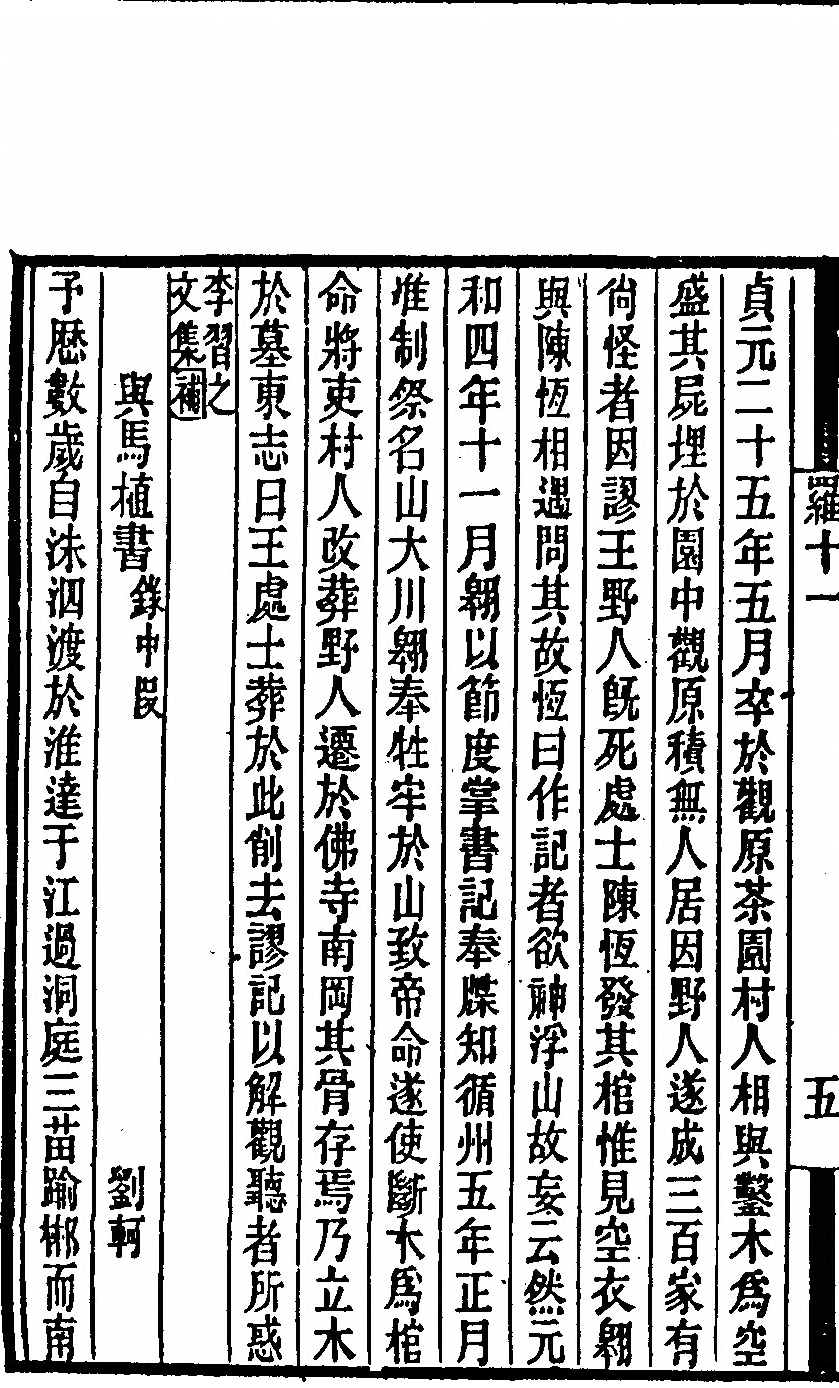 羅十一
五
貞元二十五年五月卒於觀原茶園村人相與鑿木爲空
盛其屍埋於園中觀原積無人居因野人遂成三百家有
尙怪者因謬王野人旣死處士陳恆發其棺惟見空衣翱
與陳恆相遇問其故恆曰作記者欲神浮山故妄云然元
和四年十一月翱以節度掌書記奉牒知循州五年正月
准制祭名山大川翱奉牲牢於山致帝命遂使斷木爲棺
命將吏村人改葬野人遷於佛寺南岡其骨存焉乃立木
於墓東志曰王處士葬於此削去謬記以解觀聽者所惑
李習之
文集補
與馬植書錄中段　劉軻
予歷數歲自洙泗渡於淮達于江過洞庭三苗踰郴而南